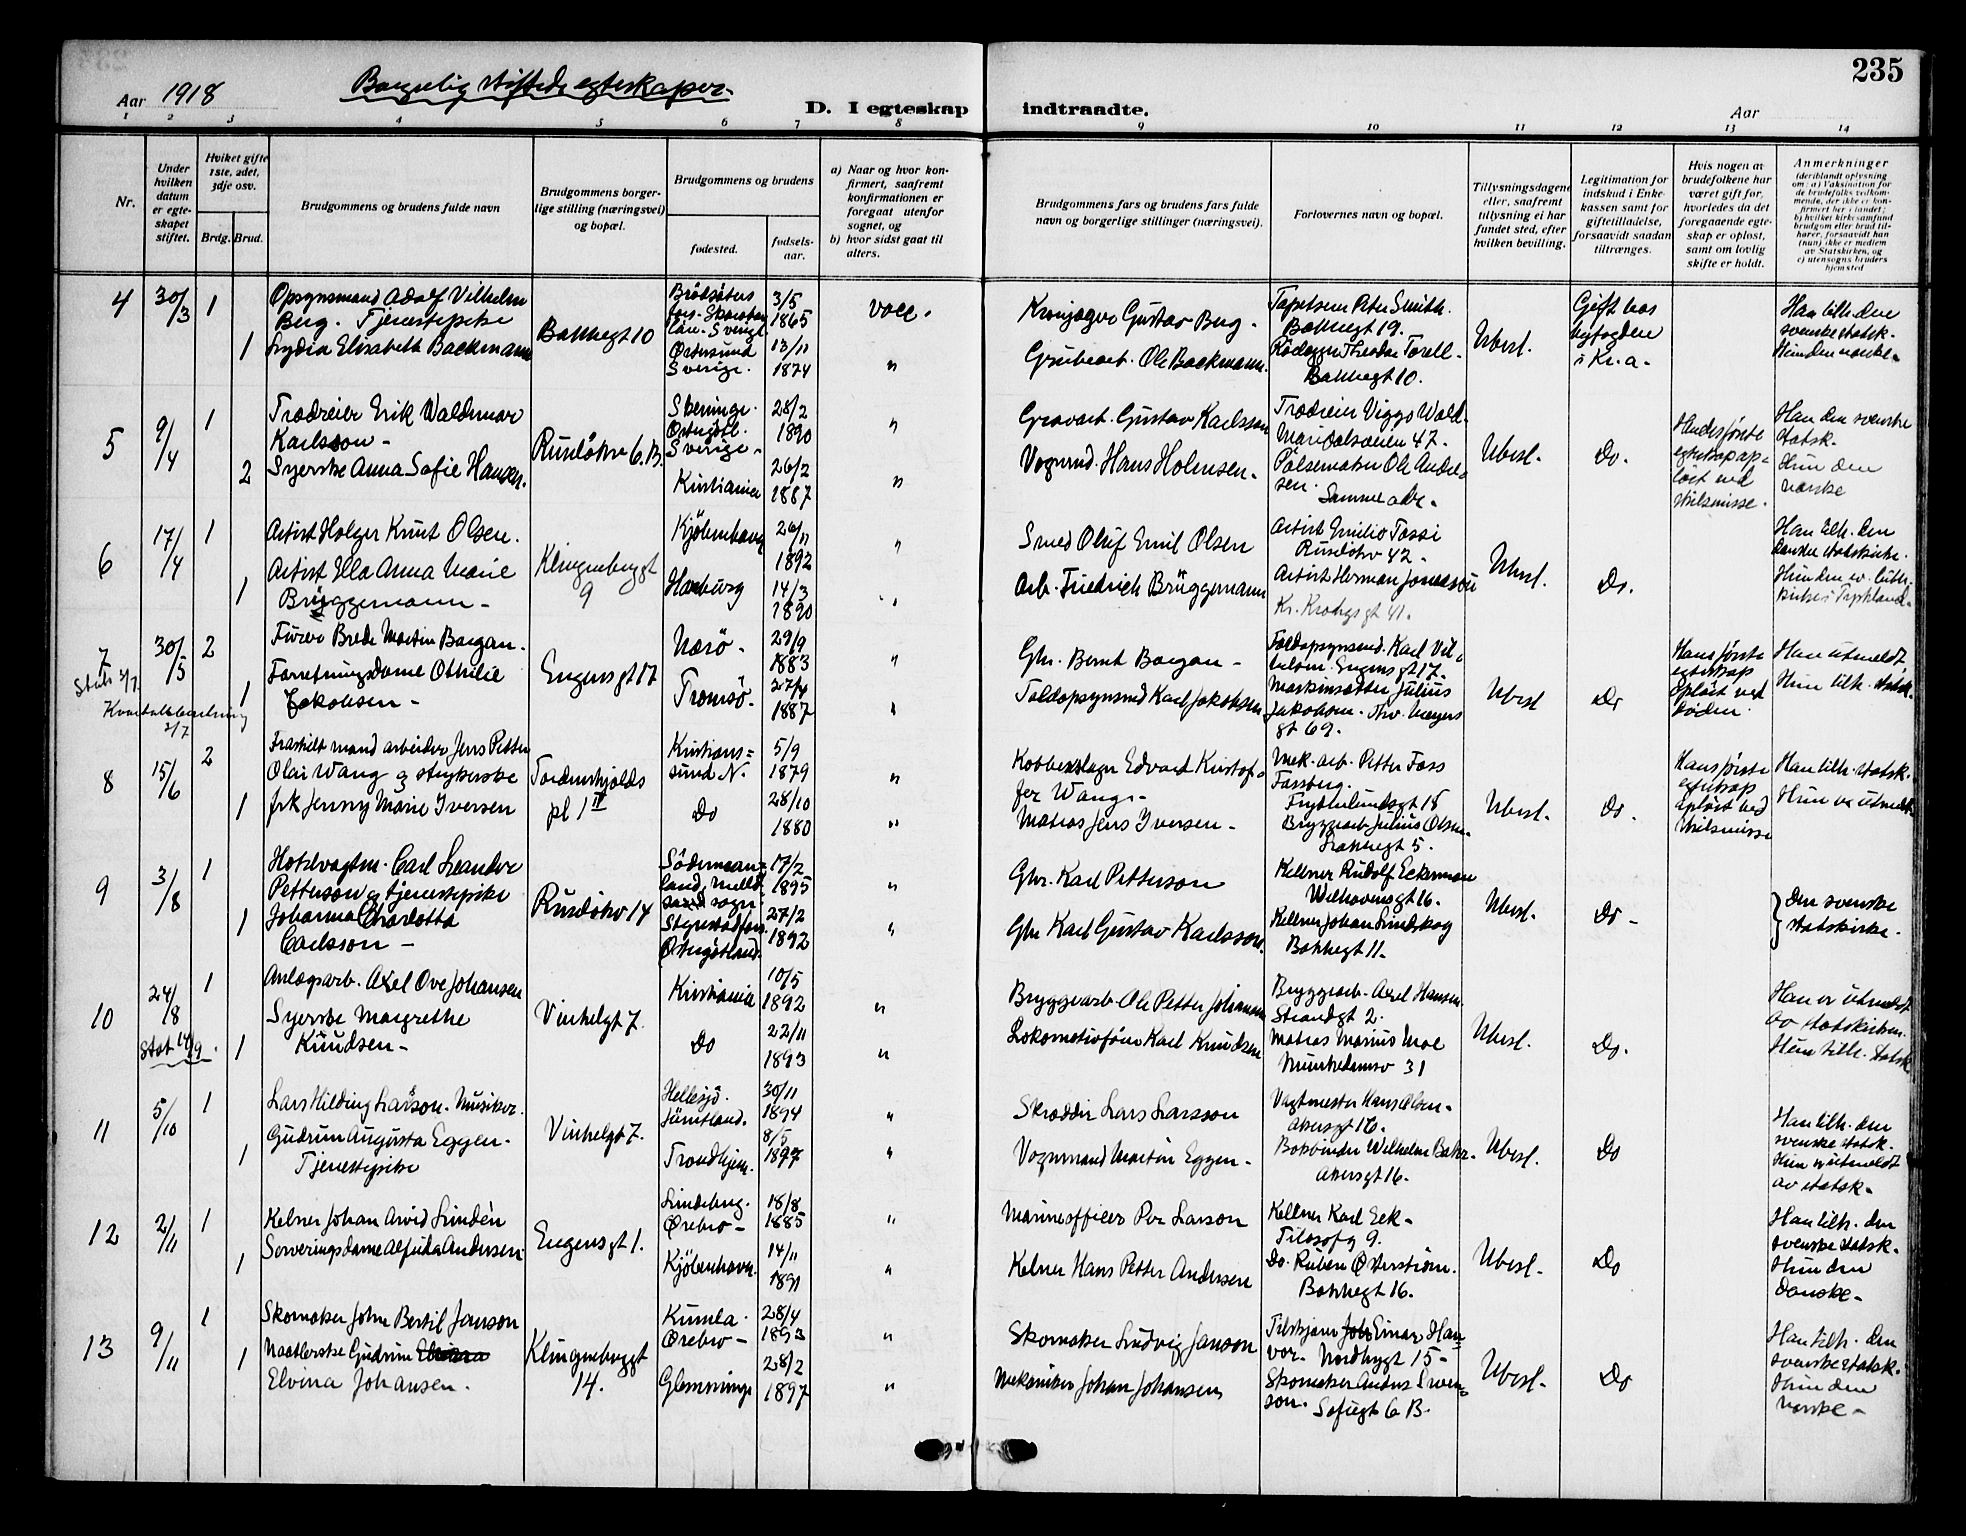 235
Aar 1918
Borgerlig stiftede egteskaper
D. I egteskap indtraadte.
Aar
1 2 3 4 5 6 7 8 9 10 11 12 13 14
Nr.
Under hvilken datum er egteskapet stiftet.
Hviket gifte 1ste, 2det, 3dje osv.
Brdg. Brud.
Brudgommens og brudens fulde navn
Brudgommens borgerlige stilling (næringsvei) og bopæl.
Brudgommens og brudens
fødested.
fødselsaar.
a) Naar og hvor konfirmert, saafremt konfirmationen er foregaat utenfor sognet, og
b) hvor sidst gaat til alters.
Brudgommens fars og brudens fars fulde navn og borgerlige stillinger (næringsvei).
Forlovernes navn og bopæl.
Tillysningsdagene eller, saafremt tillysning ei har fundet sted, efter hvilken bevilling.
Legitimation for indskud i Enkekassen samt for giftetilladelse, forsaavidt saadan tiltrænges.
Hvis nogen av brudefolkene har været gift før, hvorledes da det foregaaende egteskap er opløst, samt om lovlig skifte er holdt.
Anmerkninger
(deriblandt oplysning om: a) Vaksination for de brudefolks vedkommende, der ikke er konfirmert her i landet; b) hvilket kirkesamfund brudgom eller brud tilhører, forsaavidt han (hun) ikke er medlem av Statskirken, og c) utensogns bruders hjemsted
4 30/3 1
Opsynsmand Adolf Vilhelm
Berg. Tjenestepike
1 Lydia Elisabeth Backmann
Bakkegt 10
3/5
1865
Østersund
Sverige.
13/11
1874
vacc.
"
Gustav Berg.
Grubearb. Ole Backmann.
Peter Smith.
Bakkegt 19.
Bakkegt 10.
Ubesl.
Gift hos
byfogden
i Kr.a.
Han tilh. den
svenske statsk.
Hun den norske.
5 9/4 1
Erik Waldemar
Karlsson
2 Syerske Anna Sofie Hansen.
Ruseløkv 6. B.
Sverige
28/2
1890
Kristiania
26/2
1887
"
"
Gustav Karlsson
Vognmd. Hans Holmsen.
Pølsemaker Ole Andersen.
Samme adr.
Ubesl.
Do.
Hendes første
egteskap opløst ved
skilsmisse.
Han den svenske
statsk.
Hun den
norske
6 17/4 1
Artist Holger Knut Olsen.
1 Artist Ella Anna Marie
Brüggemann
Klingenberggt
9
Kjöbenhavn
26/11
1892
Hamburg
14/3
1890
"
"
Smed Oluf Emil Olsen
Arb. Friedrich Brüggemann
Artist Emilio Tossi
Ruseløkv 42.
Artist Herman
Kr. Kroghsgt 41.
Ubesl.
Do.
Han tilh. den
danske statskirke.
Hun den ev. luth.
kirke i Tyskland.
7 30/5 2
Brede Martin Borgan.
1 Forretningsdame Othilie
Jakobsen
Engensgt 17
Nærö
29/9
1883
Tromsö.
27/4
1887
"
"
Gbr. Bernt Borgan
Toldopsynsmd Karl Jakobsen
Toldopsynsmd. Karl Vilhelm. Engensgt 17.
Maskinsætter Julius
Jakobsen. Thv. Meyers
gt 69.
Ubesl
Do
Hans første
egteskap
opløst ved
døden.
Han utmeldt
Hun tilh. statsk.
8 15/6 2
Fraskilt mand arbeider Jens Petter
Olai Wang og strykerske
1 frk Jenny Marie Iversen
Tordenskjolds
pl 1 II
Kristiansund N.
5/9
1879
Do
28/10
1880
"
"
Kobberslager Edvard Kristoffer Wang
Matros Jens Iversen
Mek. arb. Petter Foss
Fossberg.
Frydenlundsgt 15
Bryggearb Julius Olsen
Løkkegt 5.
Ubesl.
Do.
Hans første
egteskap
opløst ved
skilsmisse
Han tilh. statsk.
Hun er utmeldt
9 3/8 1
Hotelvagtm. Carl Leander
Petterson og tjenestepike
1 Johanna Charlotta
Carlsson
Ruseløkv 14
17/2
1895
Østergötland.
27/2
1892
"
"
Gbr. Karl Petterson
Gbr Karl Gustav Karlsson.
Kellner Rudolf Eckerman
Welhavensgt 16.
Kellner Johan Lindskog
Bakkegt 11.
Ubesl.
Do
} Den svenske
statskirke.
10 24/8 1
Stat 14/9.
Anlægsarb. Axel Ove Johansen
1 Syerske Margrethe
Knudsen
Vinkelgt 7.
Kristiania
10/5
1892
Do
22/11
1893
"
"
Bryggearb Ole Petter Johansen
Lokomotivförer Karl Knudsen
Bryggearb. Axel Hansen
Strandgt 2.
Matros Marius Moe
Munkedamsv 31
Ubesl.
Do.
Han er utmeldt
av statskirken.
Hun tilh. statsk
11 5/10 1
Lars Hilding Larsson. Musiker.
1 Gudrun Augusta Eggen.
Tjenestepike
Vinkelgt 7.
Hellesjö.
Jämtland.
30/11
1894
Trondhjem.
8/5
1897
"
"
Skrædder Lars Larsson
Vognmand Martin Eggen
Vagtmester Hans Olsen
Akersgt 16.
Bokbinder Wilhelm
Akersgt 16.
Ubesl.
Do
Han tilh. den
svenske statsk.
Hun er utmeldt
av statsk.
12 2/11 1
Kelner Johan Arvid Lindén
1 Serveringsdame Alfrida Andersen
Engensgt 1.
Lindesberg.
Örebro
18/8
1885
Kjöbenhavn.
14/11
1891
"
"
Marineofficer Per Larson
Kelner Hans Petter Andersen
Kellner Karl Eek
Filosofg 9.
Do. Ruben Österström.
Bakkegt 16.
Ubesl.
Do
Han tilh. den
svenske statsk.
Hun den
danske
13 9/11 1
Skomaker John Bertil Janson
1 Gudrun
Elvina Johansen.
Klingenberggt
14.
Kumla.
Örebro
28/4
1893
Glemminge
28/2
1897
"
"
Skomaker Ludvig Janson
Mekaniker Johan Johansen
Einar
Nordbygt 15
Skomaker Anders Svenson.
Sofiegt 6 B.
Ubesl.
Do
Han tilh. den
svenske statsk.
Hun den
norske